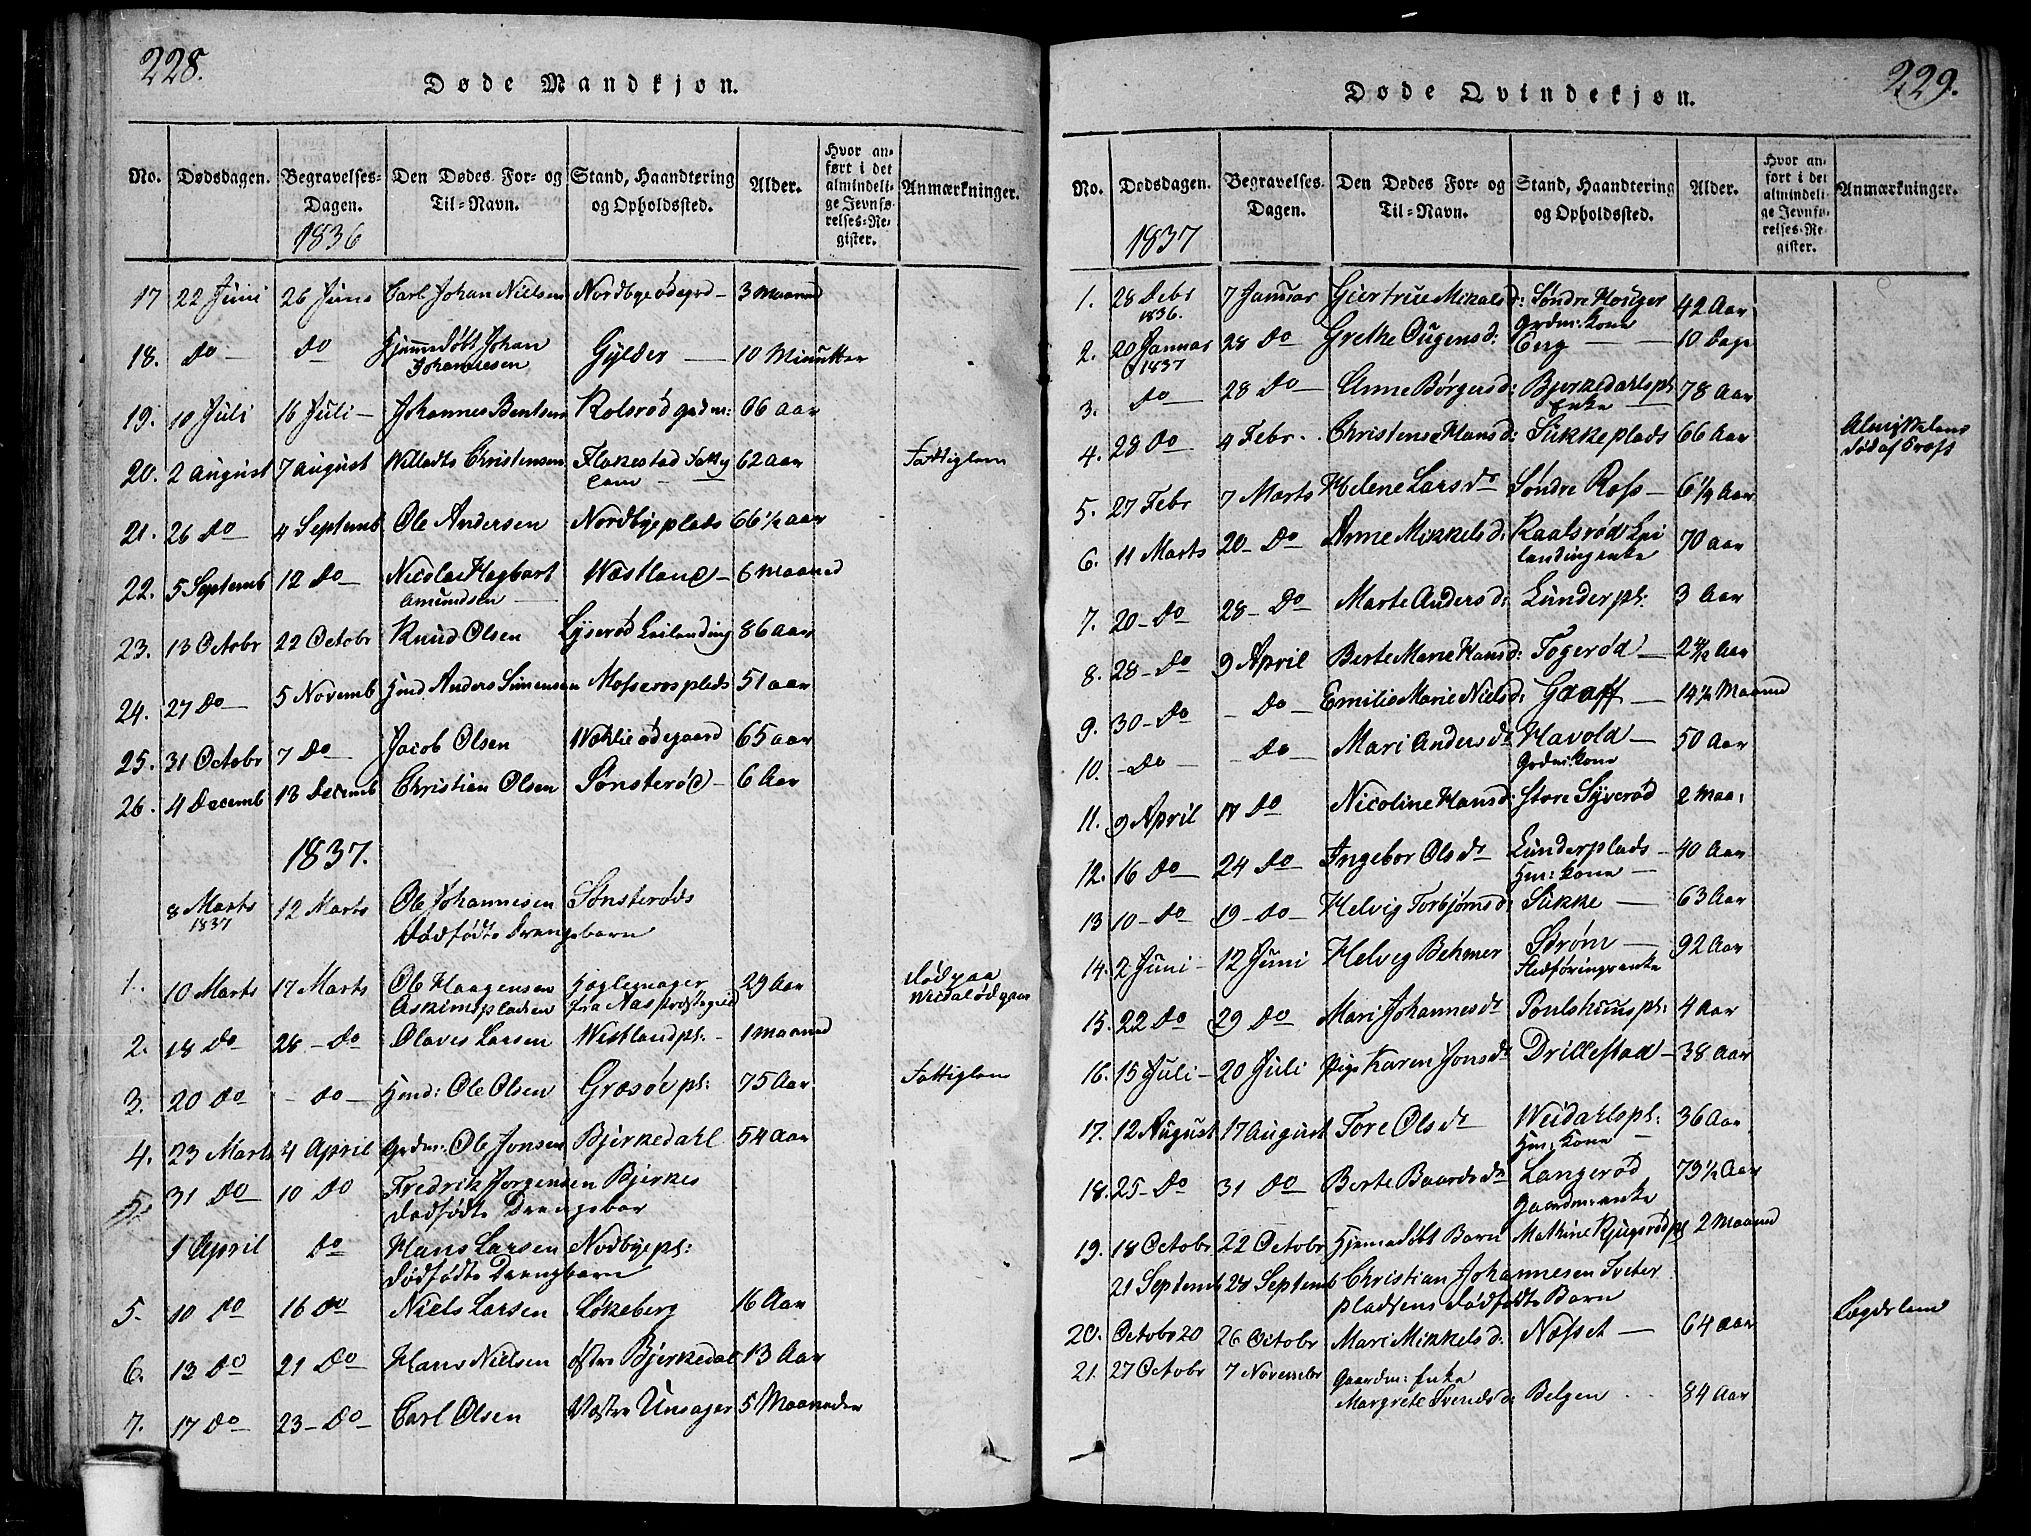 228.
Døde Mandkjøn.
No. Dødsdagen. Begravelses-Dagen. Den Dødes For- og Til-Navn. Stand, Haandtering og Opholdssted. Alder. Hvor anført i det almindelige Jevnførelses-Register. Anmærkninger.
1836
17 22 Juni 26 Juni Carl Johan Nielsen Nordbye ødegrd 3 Maaned
18. do do Hjemmedøbt Johan Gylder 10 Minutter
Johannesen
19. 10 Juli 16 Juli Johannes Bentsen Kolsrød grdm: 66 aar
20. 2 August 7 August Willadts Christensen Flakestad Fattig 62 aar Fattiglem
Lem
21. 26 do 4 Septemb Ole Andersen Nordbyeplads 66 1/2 aar
22. 5 Septemb 12 do Nicolai Hagbart Westland 6 Maaned
Amundsen
23. 13 Octobr 22 Octobr Knud Olsen Lyserød Leilending 86 aar
24. 27 do 5 Novemb Hmd Anders Simensen Mosserosplads 51 aar
25. 31 Octobr 7 do Jacob Olsen Weklie ødegaard 65 aar
26. 4 Decemb 13 Decemb Christian Olsen Sønsterød 6 Aar
1837.
8 Marts 12 Marts Ole Johannesen Sønsterøds
1837 Dødfødte Drengebarn
1. 10 Marts 17 Marts Ole Haagensen Høglemager 29 Aar død paa
Askimspladsen fra Aas Prestegield
2. 18 do 28 do Olaves Larsen Westlandpl: 1 Maaned
3. 20 do do Hmd: Ole Olsen Græsøepl: 75 Aar Fattiglem
4. 23 Marts 4 April Grdm: Ole Jonsen Bjerkedahl 54 Aar
5. 31 do 10 do Fredrik Jørgensen Bjerkes
dødfødte Drengebar
1 April do Hans Larsen Nodbyepl:
dødfødte Drengbarn
5. 10 do 16 do Niels Larsen Løkeberg 16 Aar
6. 13 do 21 do Hans Nielsen østre Bjerkedal 13 Aar
7. 17 do 23 do Carl Olsen Væstre Unsager 5 Maaneder
229.
Døde Qvindekjøn.
No. Dødsdagen. Begravelses-Dagen. Den Dødes For- og Til-Navn. Stand, Haandtering og Opholdssted. Alder. Hvor anført i det almindelige Jevnførelses-Register. Anmærkninger.
1837
1. 28 Debr 7 Januar Giertrue Mikalsd: Søndre Houger 42 Aar
1836. Grdm: Kone
2. 20 Januar 28 do Grethe Eugensd: Berg 10 dage
1837
3. do 28 do Anne Børgersd: Bjerkedahlspl 78 Aar
Enke
4. 28 do 4 Febr. Christense Hansd: Sukkeplads 66 Aar Almiskelem
død af Kræft
5. 27 Febr 7 Marts Helene Larsdr Søndre Ross 6 1/2 Aar
6. 11 Marts 20 do Anne Mikkelsd: Kaalsrød Lei 70 aar
landingenke
7. 20 do 28 do Marte Andersd: Lunderpl: 3 Aar
8. 28 do 9 April Berte Marie Hansd: Togerød 2 1/2 Aar
9. 30 do do Emilie Marie Nielsd: Graff 14 1/2 Maaned
10. do do Mari Andersdr Havold 50 Aar
Grdm: Kone
11. 9 April 17 do Nicoline Hansd: store Syverød 2 Maa:
12. 16 do 24 do Ingebor Olsdr Lunderplads 40 Aar
Hm: Kone
13 10 do 19 do Helvig Torbjørnsd: Sukke 63 Aar
14. 2 Juni 12 Juni Helvig Behmer Strøm 92 Aar
Fledføringsenke
15. 22 do 29 do Mari Johannesdr Poulshuuspl: 4 Aar
16. 15 Juli 20 Juli Pige Karen Jonsdr Drillestad 38 Aar
17. 12 August 17 August Tore Olsdr Weidahlspl: 36 Aar
Hm: Kone
18. 25 do 31 do Berte Baardsdr Langerød 73 1/2 Aar
Gaardm: enke
19. 18 Octobr 22 Octobr Hjemedøbt Barn Mathine Rjugsrødpl 2 Maaned
21 Septemb 28 Septemb Christian Johannesen Tveter
pladsens dødfødte Barn
20. Octobr 20 26 Octobr Mari Mikkelsd: Næsset 64 aar Legdslem
21. 27 Octobr 7 November Gaardm: Enke
Margrete Svendsd: Belgen 84 Aar